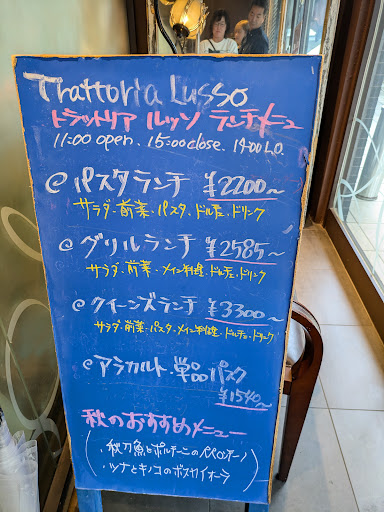 Trattoria Lusso
トラットリア ルッソ ランチメニュー
11:00 open. 15:00 close. 14:00 L.O.
@ パスタランチ ¥2200~
サラダ・前菜・パスタ・ドルチェ・ドリンク
@ グリルランチ ¥2585~
サラダ・前菜・メイン料理・ドルチェ・ドリンク
@ クイーンズランチ ¥3300~
サラダ・前菜・パスタ・メイン料理・ドルチェ・ドリンク
@ アラカルト・単品パスタ
¥1540~
秋のおすすめメニュー
・秋刀魚とポルチーニのペペロンチーノ
・ツナとキノコのボスカイオーラ